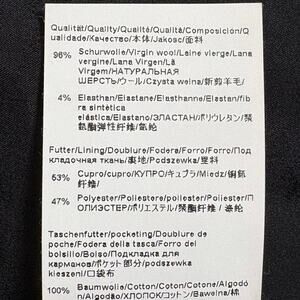 Qualität/Quality/Qualité/Qualità/Composición/Q
ualidade/Качество/本体/Jakosc/面料
96% Schurwolle/Virgin wool/Laine vierge/Lana
vergine/Lana Virgen/Lã
Virgem/НАТУРАЛЬНАЯ
ШЕРСТЬ/ウール/Czysta welna/新剪羊毛/
4% Elasthan/Elastane/Elasthanne/Elastan/fib
ra sintética
elástica/Elastano/ЭЛАСТАН/ポリウレタン/
聚氨酯弹性纤维/氨纶
Futter/Lining/Doublure/Fodera/Forro/Forro/Под
кладочная ткань/裏地/Podszewka/里料
53% Cupro/cupro/КУПРО/キュプラ/Miedz/铜氨
纤维/
47% Polyester/Poliestere/poliester/Poliester/П
ОЛИЭСТЕР/ポリエステル/聚酯纤维/涤纶
Taschenfutter/pocketing/Doublure de
poche/Fodera della tasca/Forro del
bolsillo/Bolso/Подкладка для
карманов/ポケット部分/podszewka
kieszeni/口袋布
100% Baumwolle/Cotton/Coton/Cotone/Algodó
n/Algodão/ХЛОПОК/コットン/Bawelna/棉